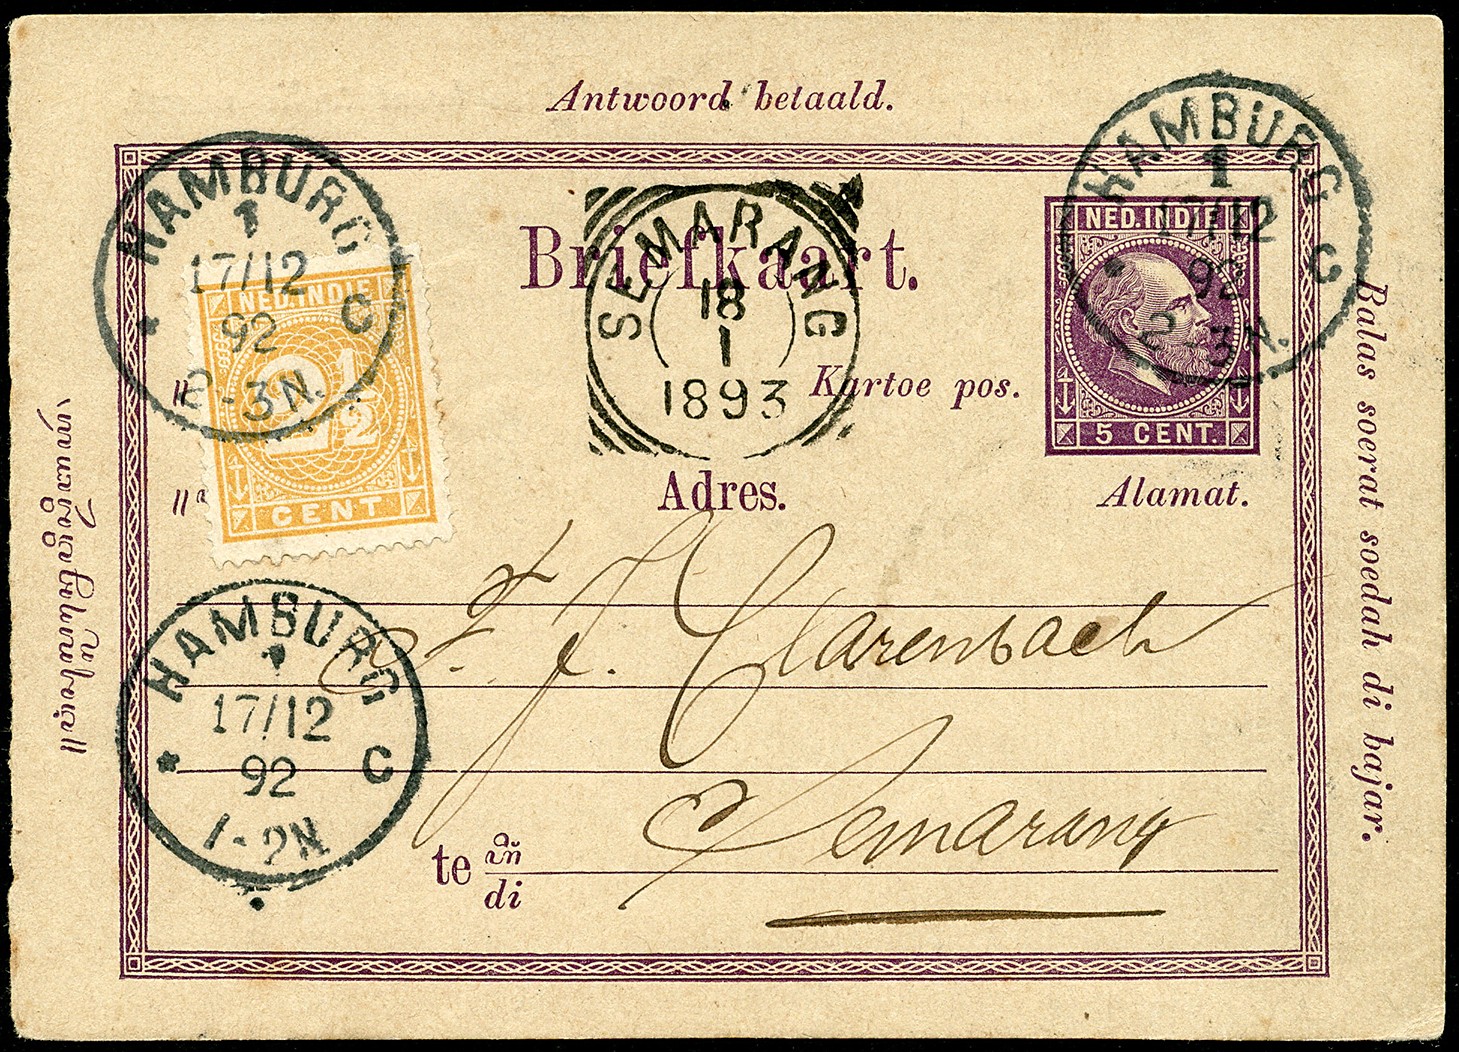 Antwoord betaald.
HAMBURG
1
17/12
92
2-3N.
* C
HAMBURG
1
17/12
92
2-3N.
* C
SEMARANG
18
1
1893
Briefkaart.
NED. INDIE
5 CENT.
NED. INDIE
2 1/2
CENT
Kartoe pos.
Adres.
Alamat.
F. J. Clarenbach
Semarang
te
di
HAMBURG
1
17/12
92
1-2N
* C
Balas soerat soedah di bajar.